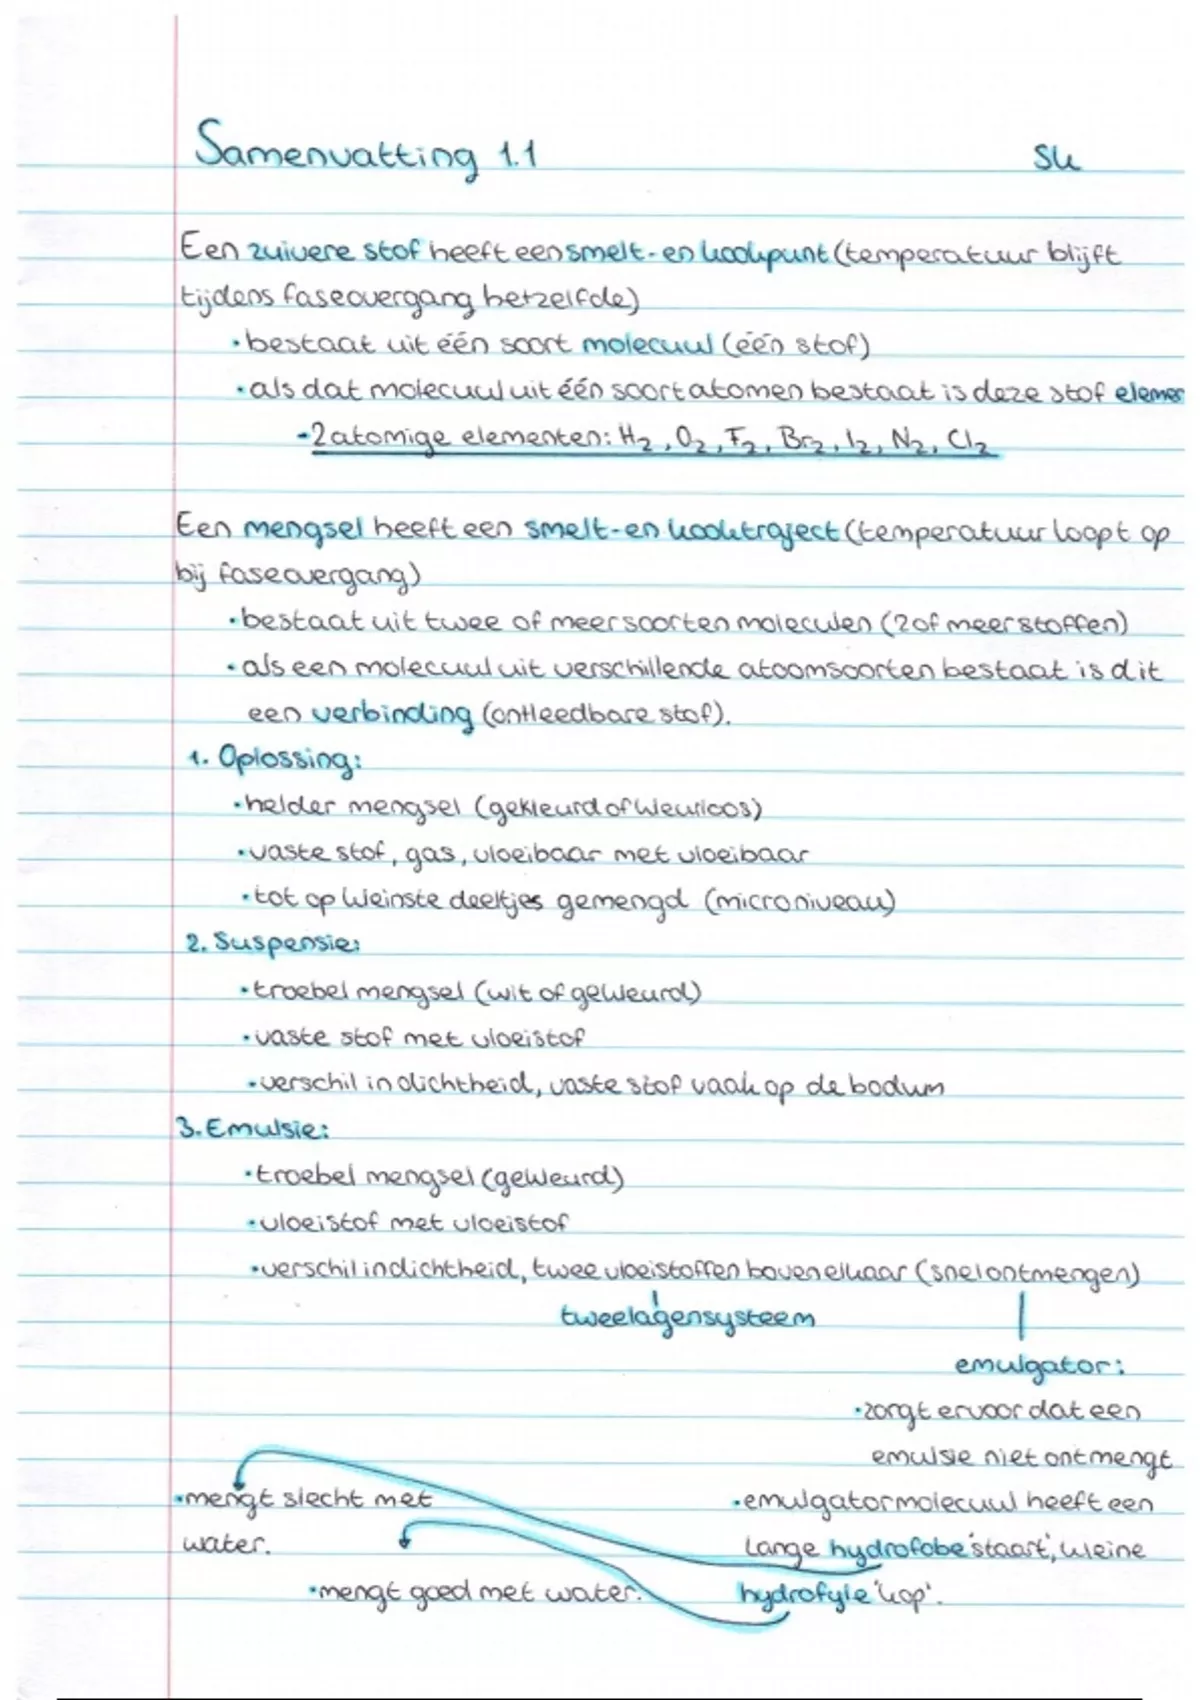 Samenvatting 1.1 Sk
Een zuivere stof heeft een smelt- en kookpunt (temperatuur blijft
tijdens faseovergang hetzelfde)
• bestaat uit één soort molecuul (één stof)
• als dat molecuul uit één soort atomen bestaat is deze stof elemen
- 2 atomige elementen: H₂, O₂, F₂, Br₂, I₂, N₂, Cl₂
Een mengsel heeft een smelt- en kooktraject (temperatuur loopt op
bij faseovergang)
• bestaat uit twee of meer soorten moleculen (2 of meer stoffen)
• als een molecuul uit verschillende atoomsoorten bestaat is dit
een verbinding (ontleedbare stof).
1. Oplossing:
• helder mengsel (gekleurd of kleurloos)
• vaste stof, gas, vloeibaar met vloeibaar
• tot op kleinste deeltjes gemengd (microniveau)
2. Suspensie:
• troebel mengsel (wit of gekleurd)
• vaste stof met vloeistof
• verschil in dichtheid, vaste stof vaak op de bodum
3. Emulsie:
• troebel mengsel (gekleurd)
• vloeistof met vloeistof
• verschil in dichtheid, twee vloeistoffen boven elkaar (snel ontmengen)
tweelagensysteem
emulgator:
• zorgt ervoor dat een
emulsie niet ontmengt
• mengt slecht met
water.
• emulgatormolecuul heeft een
lange hydrofobe 'staart', kleine
hydrofyle 'kop'.
• mengt goed met water.